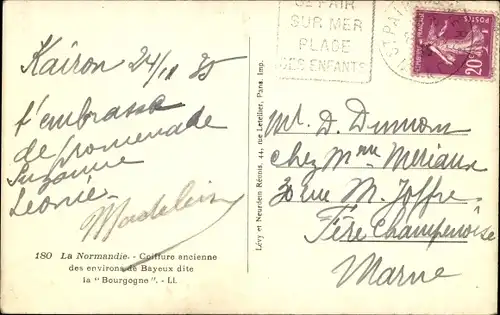 ST PAIR
SUR MER
PLAGE
DES ENFANTS
POSTES
20c
Kairon 24/ 35
t'embrasse
de promenade
Suzanne
Léonie
Madeleine
180 La Normandie. - Coiffure ancienne
des environs de Bayeux dite
la "Bourgogne". - LL
Lévy et Neurdein Réunis, 44, rue Letellier, Paris. Imp.
Mr. D. Dumon
chez Mme Meriaux
30 rue M. Joffre
Fère Champenoise
Marne